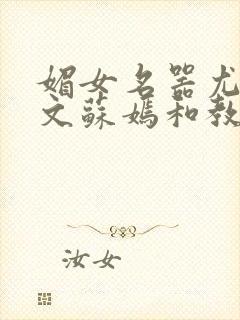 媚女名器尤
文蘇媽和教
汝女